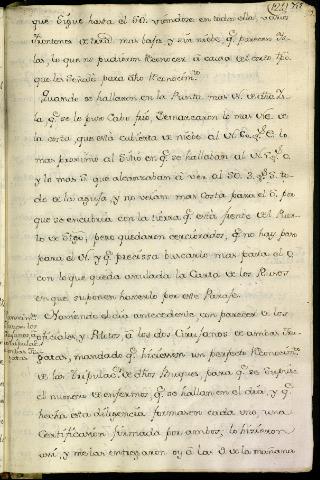 que sigue hasta el SO. viendose en todas ellas varios
Orontones de tierra mas baja y sin nieve q.e parecen Ys-
las, lo que no pudieron Reconocer à causa del corto tpo.
que les señalò para dho Reconocim.to
Quando se hallaron en la Punta mas N. de dha Ys-
la q.e se le puso Cabo frio, Demarcaron lo mas de
la costa, que està cubierta de nieve al N. q.e lo
mas proximo al Sitio en q.e se hallaban al N.
y lo mas q.e alcanzaban à ver al SO. S. to-
do de la aguja, y no veian mas Costa para el O. por
que se encubria con la tierra q.e està frente del Puer-
to de Digo; pero quedaron cerciorados, q.e no hay paso
para el N. y q.e precisa buscarlo mas para el O.
con lo que queda anulada la Carta de los Rusos
en que suponen haverlo por este Paraje.
Haviendo el dia antecedente con parecer de los
oficiales, y Pilotos, à los dos Cirujanos de ambas Fra-
gatas, mandado q.e hicieren un perfecto Reconocim.to
de las tripulac.s de dhos Buques, para q.e se supiese
el numero de enfermos q.e se hallan en el dia, y q.e
hecha esta diligencia formaren cada uno, una
Certificacion firmada por ambos, lo hicieron
asi, y me las entregaron oy à las de la mañana